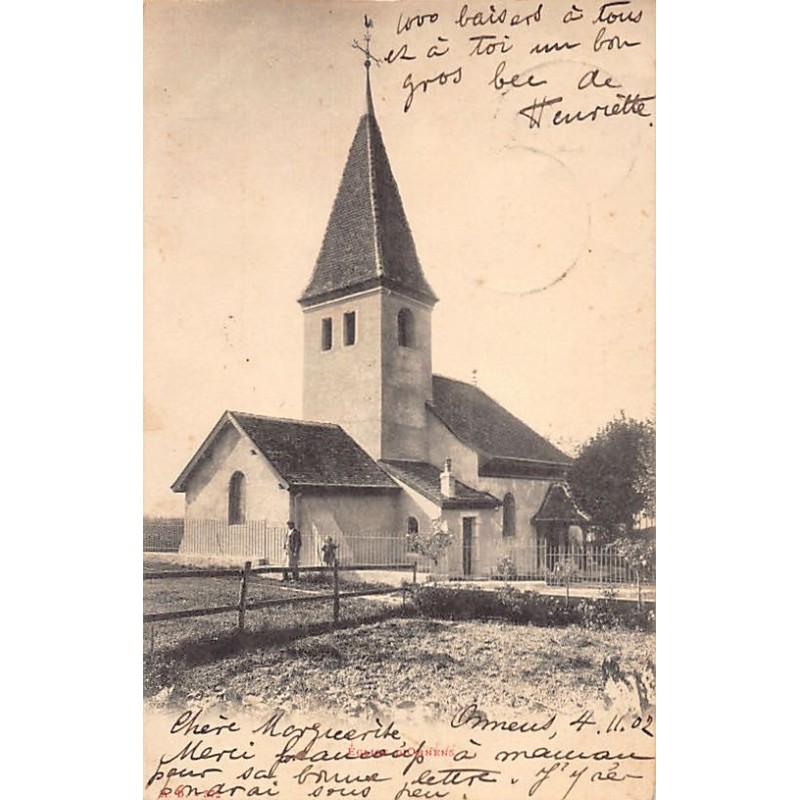 1000 baisers à tous
et à toi un bon
gros bec de
Henriette.
Chère Marguerite Onnens, 4.11.02
Merci beaucoup à maman
EGLISE D'ONNENS
pour sa bonne lettre. J'y ré-
pondrai sous peu.